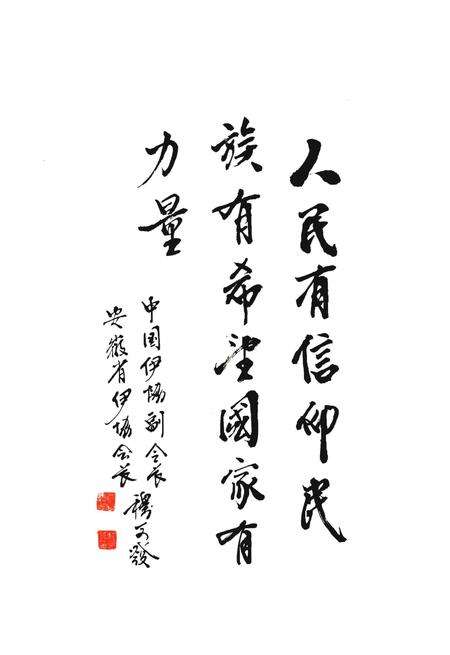 人民有信仰民
族有希望國家有
力量
中国伊协副会长
安徽省伊协会长
穆可發